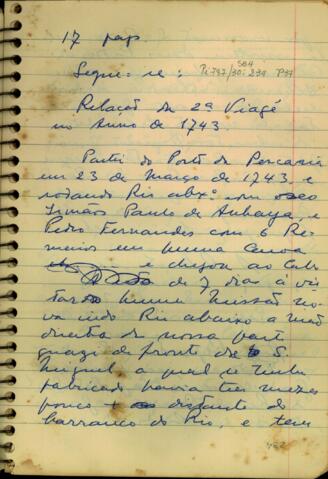 17 pap.
584
Pi 797/30: 294 P97
Segue-se:
Relação da 2ª Viagẽ
no Anno de 1743.
Partei do Porto da Pescaria
em 23 de Março de 1743 e
rodando Rio abxº com os
Irmãos Paulo de Anhaya, e
Pedro Fernandes com 6 Re-
meiros em huma Canoa
e chegou ao Cabo
de 7 dias á vis
ta de huma Missão no
va indo Rio abaixo a mão
direita da nossa part
quazi de fronte de S.
Miguel a qual se tinha
fabricado havia tres mezes
pouco + distante do
barranco do Rio, e tem